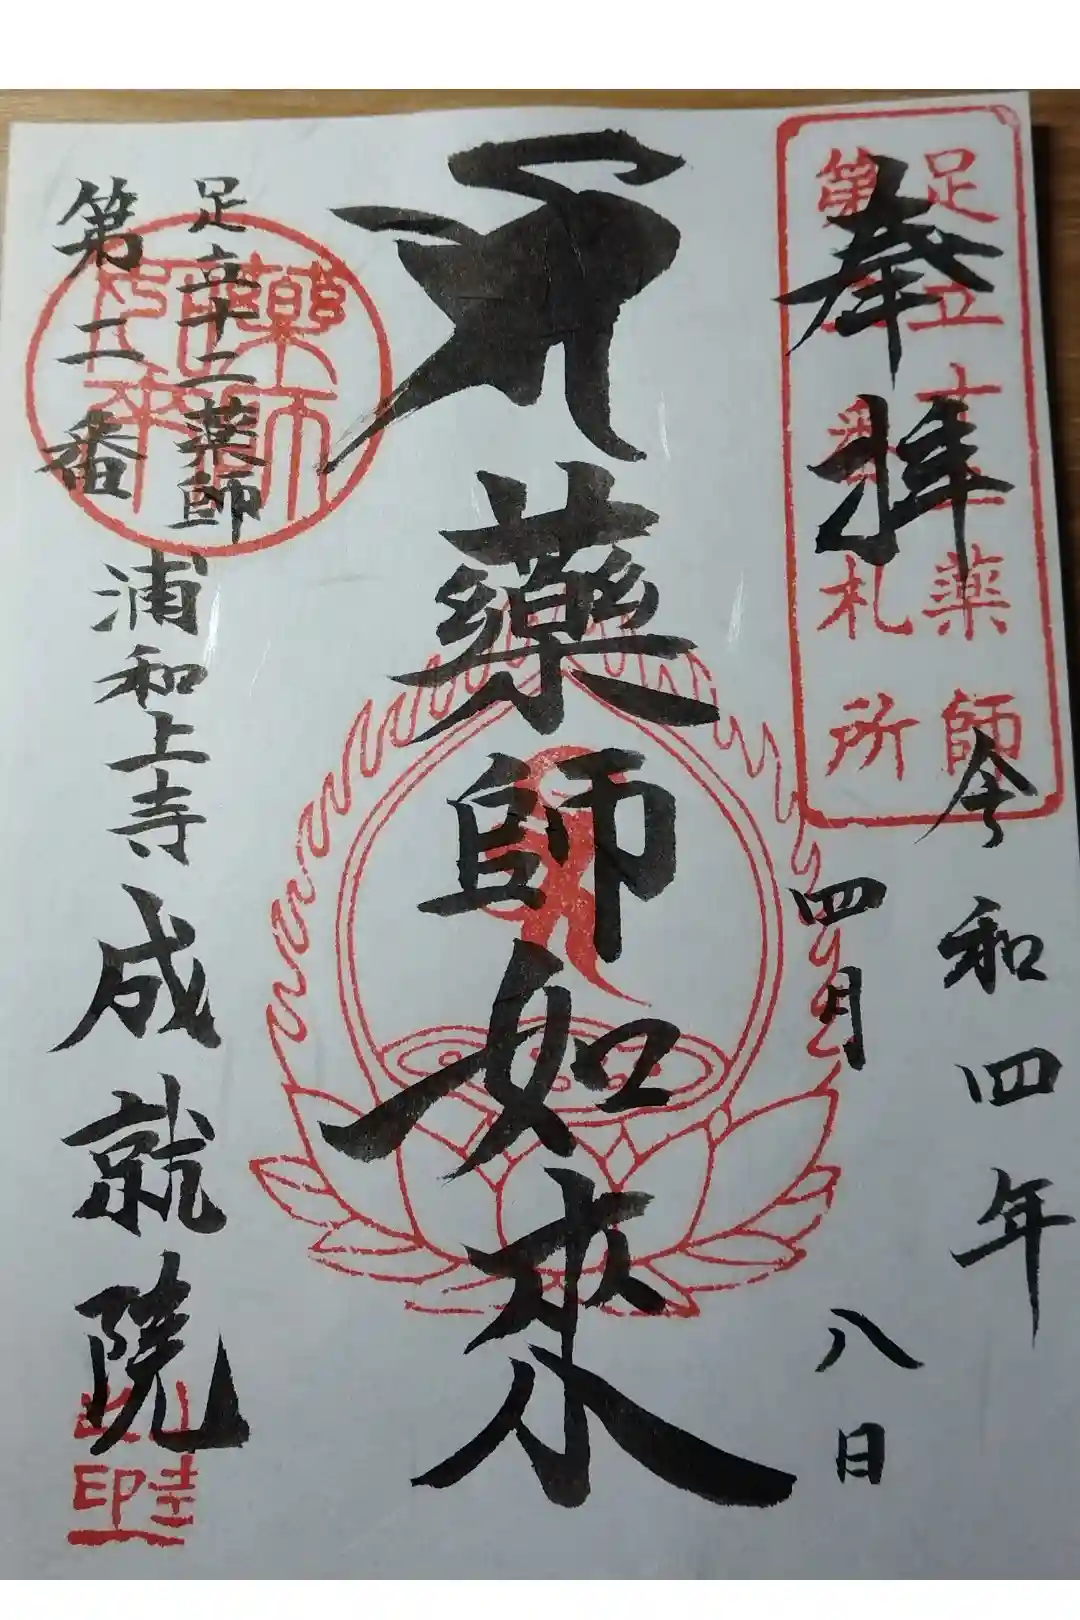 奉拝
足立十二薬師
第二番札所
令和四年
四月八日
薬師如来
足立十二薬師
第二番
浦和上寺
成就院